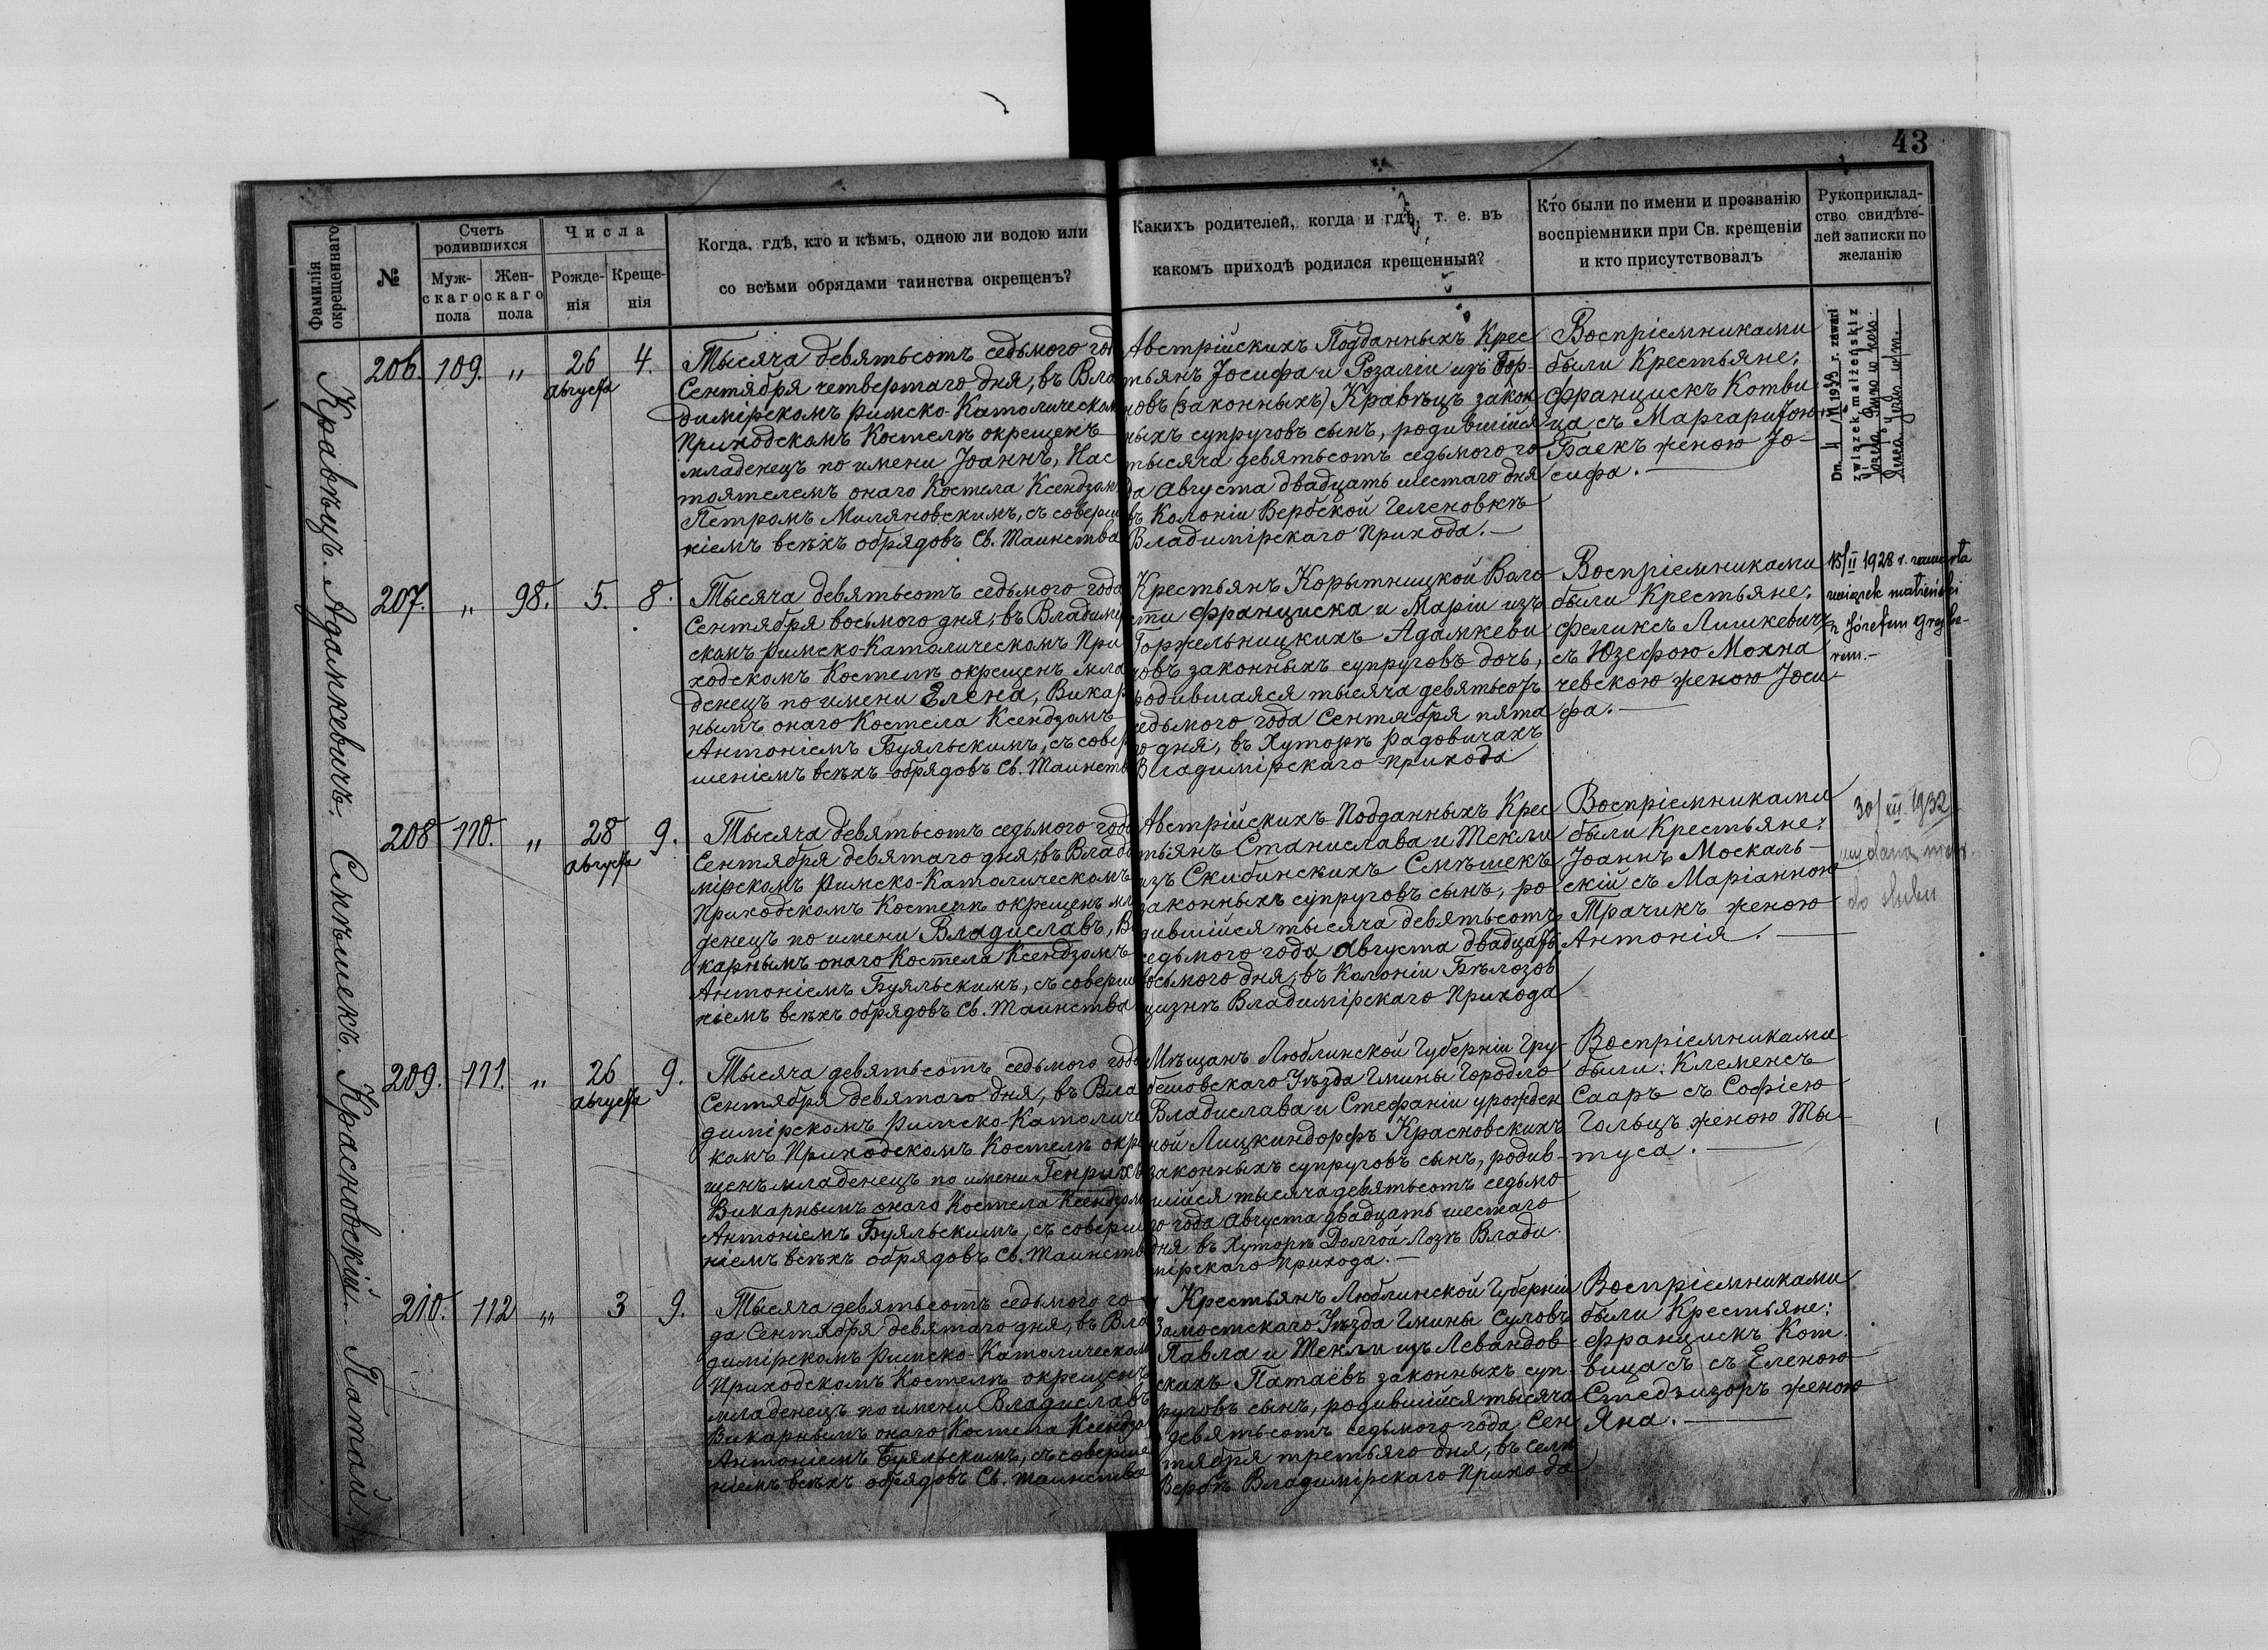 43
Фамилія окрещеннаго
№
Счетъ родившихся
Муж-скаго пола
Жен-скаго пола
Числа
Рожде-нія
Креще-нія
Когда, гдѣ, кто и кѣмъ, одною ли водою или
со всѣми обрядами таинства окрещенъ?
Какихъ родителей, когда и гдѣ, т. е. въ
какомъ приходѣ родился крещенный?
Кто были по имени и прозванію
воспріемники при Св. крещеніи
и кто присутствовалъ
Рукоприклад-
ство свидѣте-
лей записки по
желанію
Кравѣцъ. Адамкевичъ. Смѣшекъ. Красновскій. Патай.
206. 109. " 26 Августа 4.
Тысяча девятьсотъ седьмого год
Сентября четвертаго дня, въ Вла
димірскомъ Римско-Католическом
Приходскомъ Костелѣ окрещенъ
младенецъ по имени Іоаннъ, Нас
тоятелемъ онаго Костела Ксендзом
Петромъ Миляновскимъ, съ соверше
ніемъ всѣхъ обрядовъ Св. Таинства
Австрійскихъ Подданныхъ Крес
тьянъ Іосифа и Розаліи изъ Бор-
новъ (законныхъ) Кравѣцъ закон
ныхъ супруговъ сынъ, родившійся
тысяча девятьсотъ седьмого го
да Августа двадцать шестаго дня
въ Колоніи Вербской Геленовкѣ
Владимірскаго Прихода.
Воспріемниками
были Крестьяне:
Францискъ Котви
ца съ Маргаритою
Баекъ женою Іо-
сифа.
Dn. 4/VI 1933 r. zawarł
związek małżeński z
207. " 98. 5. 8.
Тысяча девятьсотъ седьмого года
Сентября восьмого дня, въ Владимір
скомъ Римско-Католическомъ При
ходскомъ Костелѣ окрещенъ мла
денецъ по имени Елена, Викар
нымъ онаго Костела Ксендзомъ
Антоніемъ Буяльскимъ, съ совер
шеніемъ всѣхъ обрядовъ Св. Таинств
Крестьянъ Корытницкой Воло
сти Франциска и Маріи изъ
Горжельницкихъ Адамкеви
човъ законныхъ супруговъ дочь,
родившаяся тысяча девятьсотъ
седьмого года Сентября пята
го дня, въ Хуторѣ Радовичахъ
Владимірскаго Прихода
Воспріемниками
были Крестьяне:
Феликсъ Лишкевичъ
съ Юзефою Мохна
чевскою женою Іоси
фа.
15/II 1928 r. zawarła
związek małżeński
z Józefem
208 110. " 28 Августа 9.
Тысяча девятьсотъ седьмого года
Сентября девятаго дня, въ Влади
мірскомъ Римско-Католическомъ
Приходскомъ Костелѣ окрещенъ мла
денецъ по имени Владиславъ, Ви
карнымъ онаго Костела Ксендзомъ
Антоніемъ Буяльскимъ, съ соверше
ніемъ всѣхъ обрядовъ Св. Таинства
Австрійскихъ Подданныхъ Крес
тьянъ Станислава и Текли
изъ Скибинскихъ Смѣшекъ
законныхъ супруговъ сынъ, ро
дившійся тысяча девятьсотъ
седьмого года Августа двадцать
восьмого дня, въ Колоніи Бѣлозов
щизнѣ Владимірскаго Прихода
Воспріемниками
были Крестьяне:
Іоаннъ Москаль-
скій съ Маріанною
Трачикъ женою
Антонія.
30/XII 1932
wydano metr.
do ślubu
209. 111. " 26 Августа 9.
Тысяча девятьсотъ седьмого года
Сентября девятаго дня, въ Вла
димірскомъ Римско-Католичес
комъ Приходскомъ Костелѣ окре
щенъ младенецъ по имени Генрихъ
Викарнымъ онаго Костела Ксендзом
Антоніемъ Буяльскимъ, съ соверше
ніемъ всѣхъ обрядовъ Св. Таинств
Мѣщанъ Люблинской Губерніи Гру-
бешовскаго Уѣзда Гмины Городло
Владислава и Стефаніи урожден
ной Лицкиндорфъ Красновскихъ
законныхъ супруговъ сынъ, родив-
шійся тысяча девятьсотъ седьмо
го года Августа двадцать шестаго
дня въ Хуторѣ Долгой Лозѣ Влади
мірскаго Прихода.
Воспріемниками
были: Клеменсъ
Сааръ съ Софіею
Гольцъ женою Ты-
туса.
210. 112 " 3 9.
Тысяча девятьсотъ седьмого го-
да Сентября девятаго дня, въ Вла
димірскомъ Римско-Католическом
Приходскомъ Костелѣ окрещенъ
младенецъ по имени Владиславъ
Викарнымъ онаго Костела Ксендзом
Антоніемъ Буяльскимъ, съ соверше
ніемъ всѣхъ обрядовъ Св. Таинства
Крестьянъ Люблинской Губерніи
Замостскаго Уѣзда Гмины Суловъ
Павла и Текли изъ Левандов
скихъ Патаёвъ законныхъ суп-
руговъ сынъ, родившійся тысяча
девятьсотъ седьмого года Сен
тября третьяго дня, въ селѣ
Вербѣ Владимірскаго Прихода
Воспріемниками
были Крестьяне:
Францискъ Кот
вица съ съ Еленою
женою
Яна.